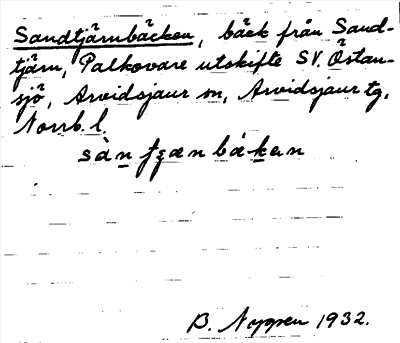 Sandtjärnbäcken, bäck från Sand-
tjärn, Palkovare utskifte SV. Östan-
sjö, Arvidsjaur sn, Arvidsjaur tg,
Norrb. l.
B. Noppen 1932.